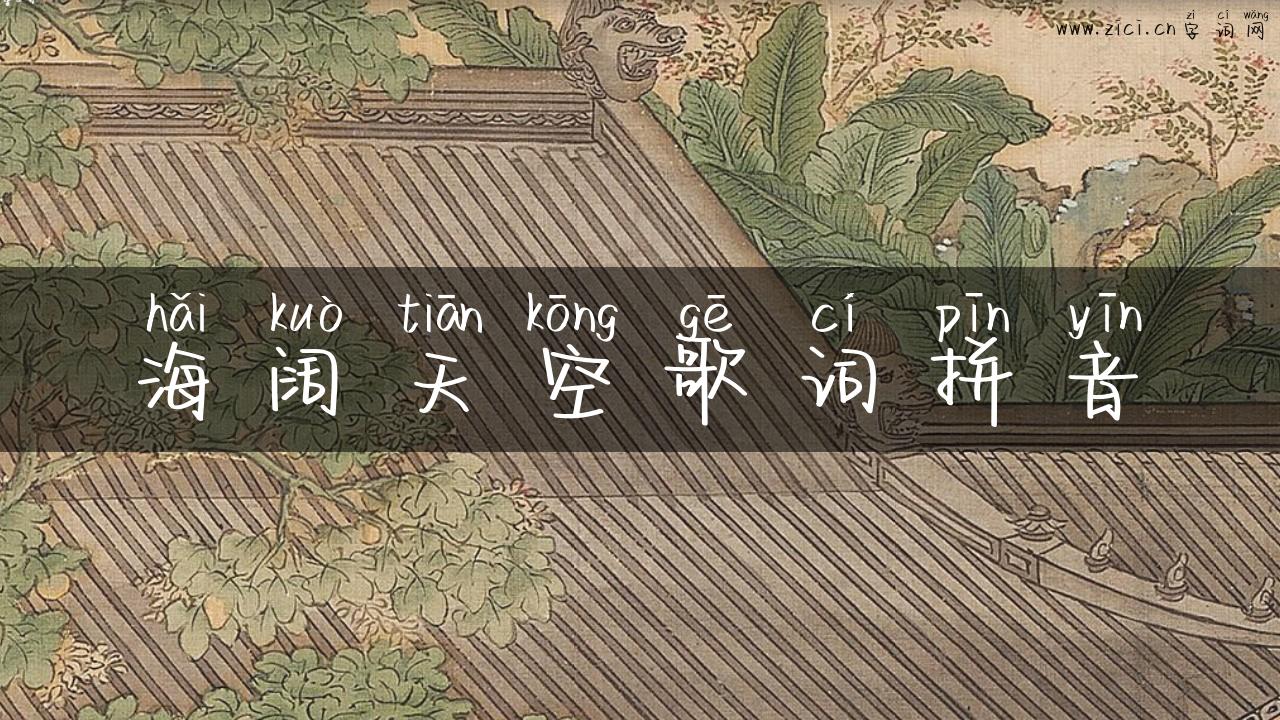 zì cí wǎng
www.zici.cn 字词网
hǎi kuò tiān kōng gē cí pīn yīn
海阔天空歌词拼音